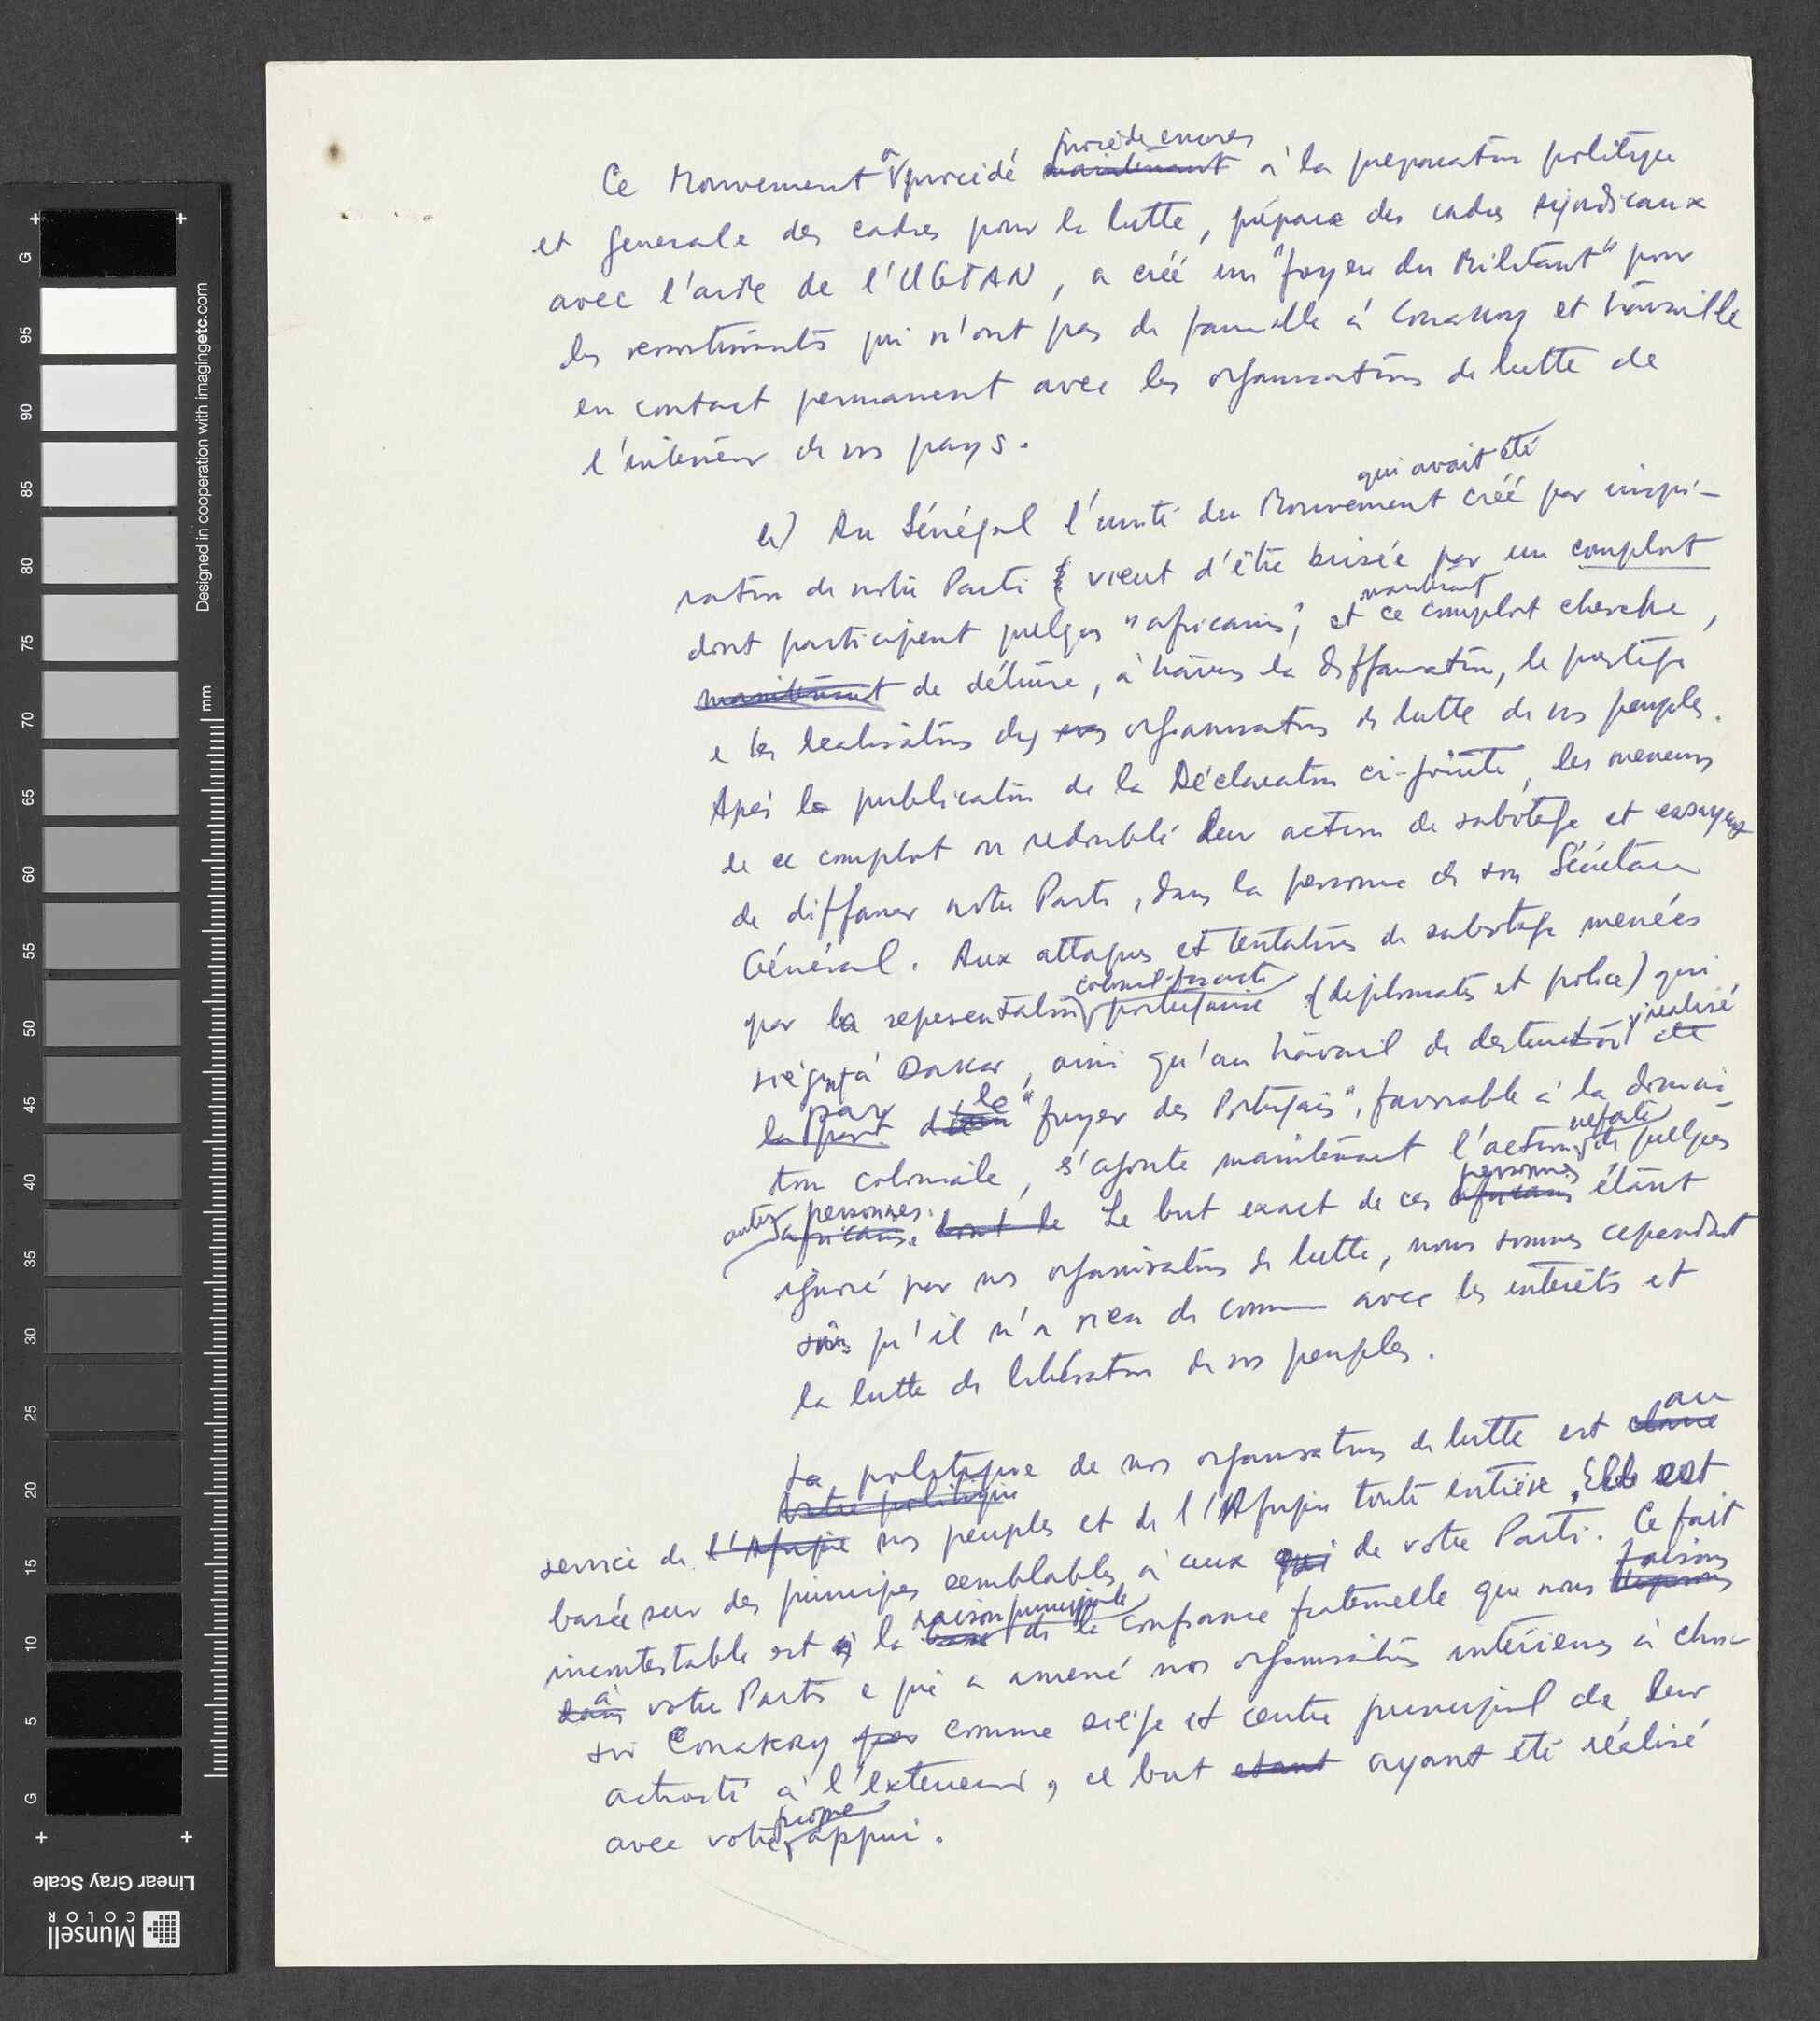 Ce Mouvement a procidé procide encores maintenant à la preparation politique
et generale des cadres pour la lutte, prépare des cadres syndicaux
avec l'aide de l'UGTAN, a créé un "foyer du Militant" pour
les ressortissants qui n'ont pas de famille à Conakry et travaille
en contact permanent avec les organisations de lutte de
l'intérieur de nos pays.
b) Au Sénégal l'unité du Mouvement qui avait été créé par inspi-
ration de notre Parti vient d'être brisée par un complot
dont participent quelques "africains", et maintenant ce complot cherche,
maintenant de détruire, à travers la diffamation, le prestige
e les realisations des nos organisations de lutte de nos peuples.
Après la publication de la Déclaration ci-jointe, les meneurs
de ce complot on redoublé leur action de sabotage et essayent
de diffamer notre Parti, dans la personne de son Sécrétaire
Général. Aux attaques et tentatives de sabotage menées
par la representation colonial-fasciste portugaise (diplomates et police) qui
siègent à Dakar, ainsi qu'au travail de destruction realisé
la part par le "foyer des Portugais", favorable à la domina-
tion coloniale, s'ajoute maintenant l'action nefaste de quelques
autres personnes. africains. dont le Le but exact de ces personnes africains étant
ignoré par nos organisations de lutte, nous sommes cependant
sûrs qu'il n'a rien de commun avec les interêts et
la lutte de libération de nos peuples.
La politique de nos organisations de lutte est au claire
Notre politique
service de l'Afrique nos peuples et de l'Afrique toute entière. Elle est
basée sur des principes semblables à ceux qui de votre Parti. Ce fait
incontestable est la raison principale base de la confiance fraternelle que nous faisons
dans à votre Parti e qui a amené nos organisations intérieures à choi-
sir Conakry comme siège et centre principal de leur
activité à l'exterieur, ce but etant ayant été réalisé
avec votre propre appui.
G
95
90
85
80
75
70
65
60
55
50
45
40
35
30
25
20
15
10
5
G
mm
Designed in cooperation with imagingetc.com
Linear Gray Scale
Munsell
COLOR